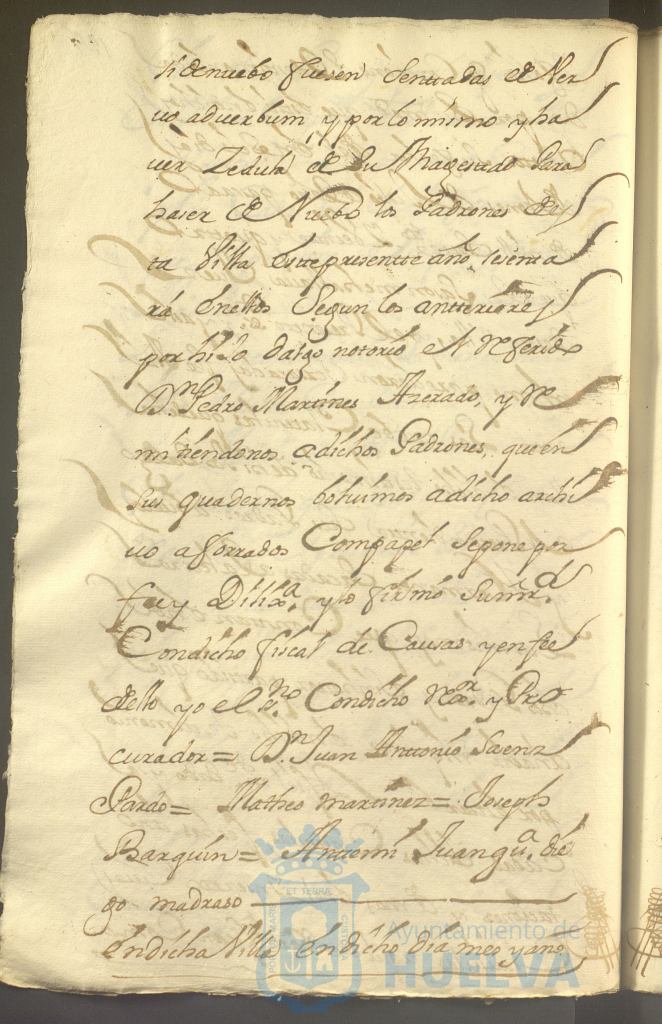 fi de nuebo fuesen Senttadas de Ver
vo adverbum, y por lo mismo y ha
ver Zedula de Su Magestad para
haser de Nuebo los Padrones de es
ta Villa este presentte año, se senta
rá en ellos Segun los antteriores
por hijo dalgo notorio el referido
Dn. Pedro Martines Azerado, y re
mitiendonos a dichos Padrones, que en
sus quadernos bolvimos a dicho archi
vo aforrados Com papel Se pone por
fee y Dilixa. y lo firmó Su mrd.
Con dicho fiscal de Causas y en fee
de ello yo el no. Con dicho Rexor. y Pro
curador = Dn. Juan Anttonio Saenz
Pardo = Matheo martinez = Joseph
Barquin = Anttemi Juan gua. die
go madraso
En dicha Villa en dicho dia mes y año
ET TERRÆ
Ayuntamiento de
HUELVA